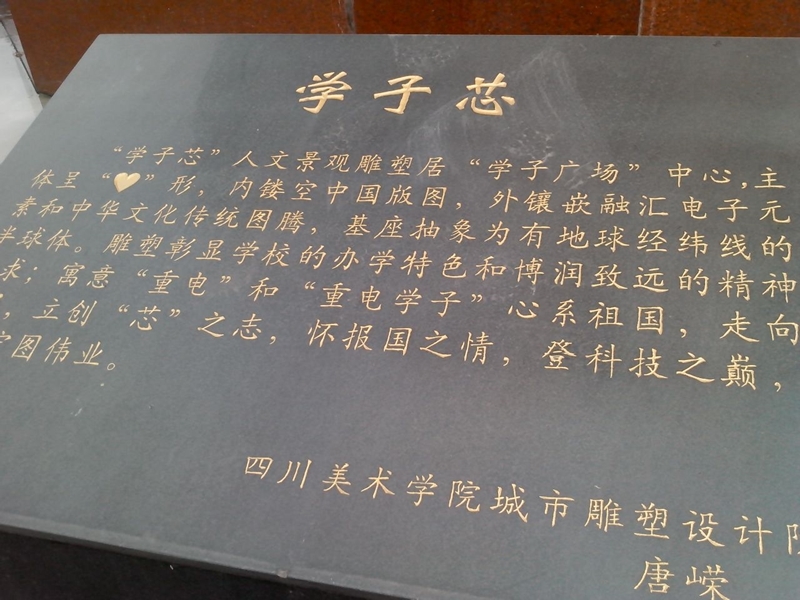 学子芯
“学子芯”人文景观雕塑居“学子广场”中心,主
体呈“♥”形，内镂空中国版图，外镶嵌融汇电子元
素和中华文化传统图腾，基座抽象为有地球经纬线的
半球体。雕塑彰显学校的办学特色和博润致远的精神
求；寓意“重电”和“重电学子”心系祖国，走向
，立创“芯”之志，怀报国之情，登科技之巅，
宏图伟业。
四川美术学院城市雕塑设计院
唐嵘